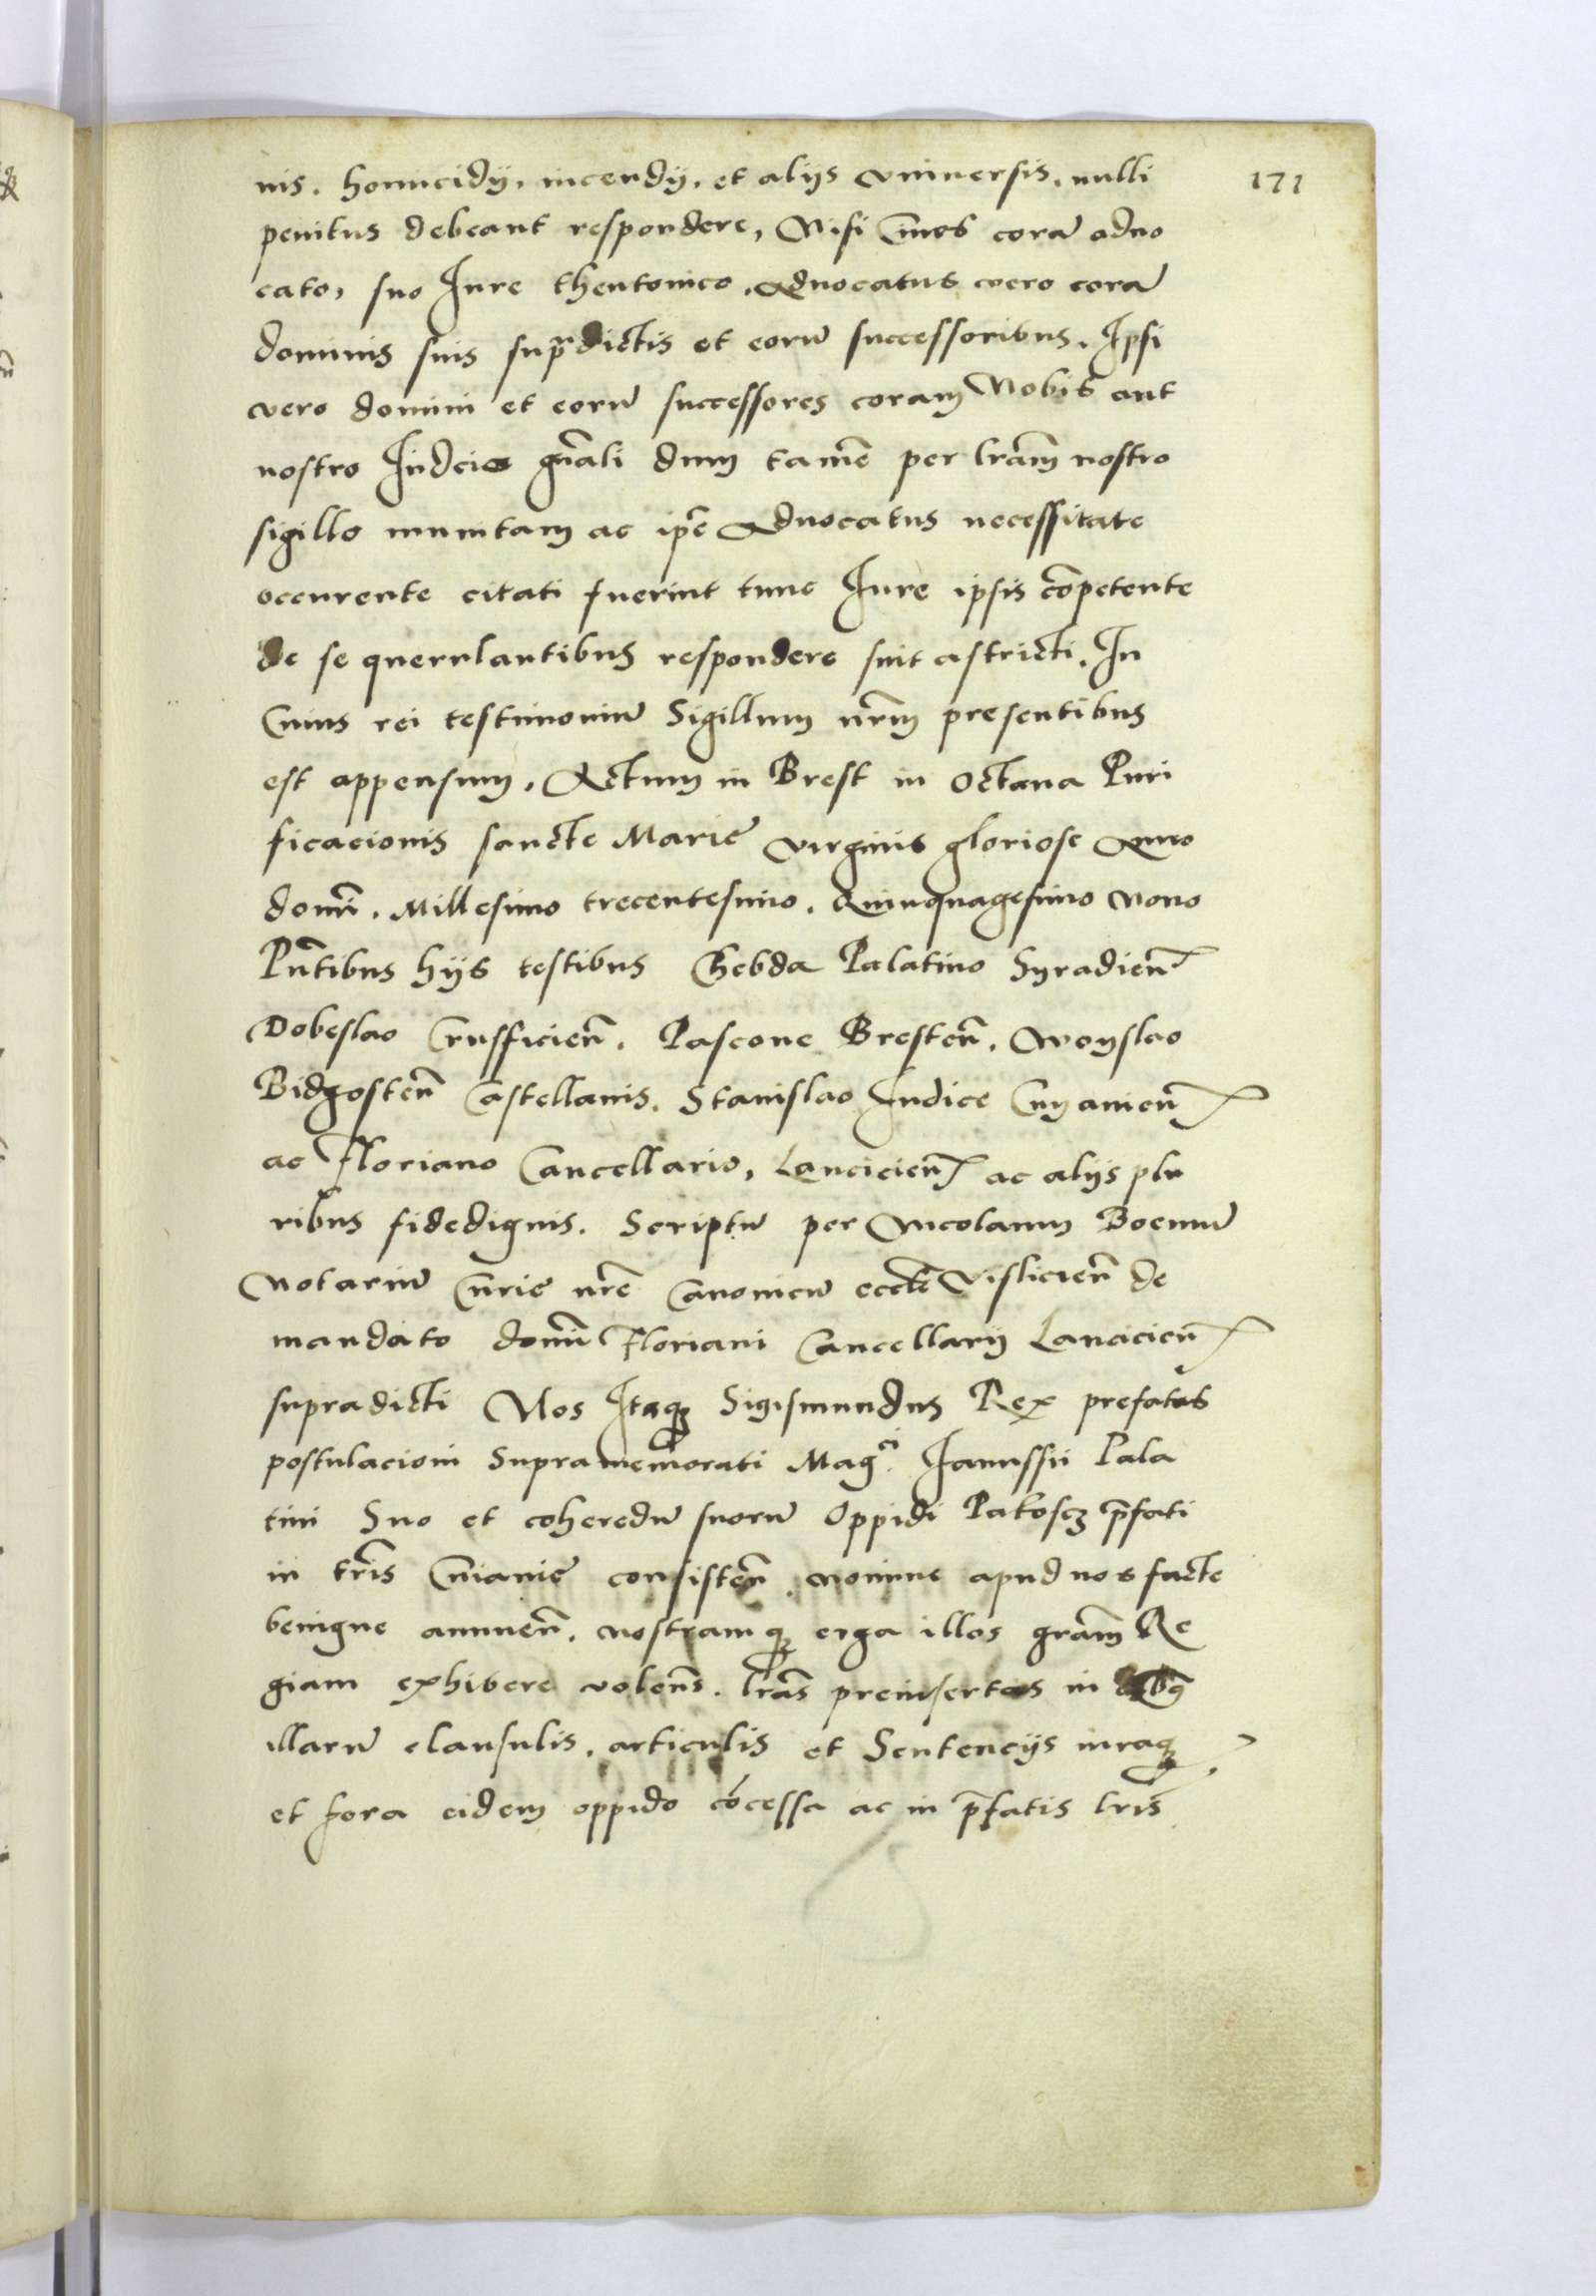 171
nis. homicidÿ, incendÿ, et alÿs vniuersis, nulli
penitus debeant respondere, Nisi Ciues corā aduo
cato, suo Jure thentonico. Aduocatus vero corā
dominis suis supradictis et eorū successoribus. Ipsi
vero domini et eorū successores coram Nobis aut
nostro Judcio gn̄ali dum tamē per lrām nostro
sigillo munitam ac ip̄e Aduocatus necessitate
occurrente citati fuerint tunc Jure ipsis cōpetente
de se querulantibus respondere sint astricti. In
Cuius rei testimoniū Sigillum nr̄m presentibus
est appensum. Actum in Brest in Octaua Puri
ficacionis sancte Marie virginis gloriose Anno
domī. Millesimo trecentesimo. Quinquagesimo Nono
Pn̄tibus hÿs testibus Chebda Palatino Syradien̄
Dobeslao Crusficien̄. Pascone Bresten̄. Woyslao
Bidgosten̄ Castellanis. Stanislao Judice Cuyauien̄
ac Floriano Cancellario, Lancicien̄ ac alÿs plu
ribus fidedignis. Scriptū per Nicolaum Boemū
Notariū Curie nr̄e Canonicū eccl̄e Visliciēn de
mandato domī Floriani Cancellarÿ Lancicien̄
supradicti Nos Itaqꝫ Sigismundus Rex prefatus
postulacioni Supramemorati Mag.ci Janussii Pala
tini Suo et coheredū suorū Oppidi Pakoscz p̄fati
in tr̄is Cuiauie consisten̄ nomine apud nos facte
benigne annuen̄. nostramqꝫ erga illos grām Re
giam exhibere volen̄s. lrās preinsertas in
illarū clausulis, articulis et Sentencÿs iuraqꝫ
et fora eidem oppido cōcessa ac in p̄fatis lr̄is